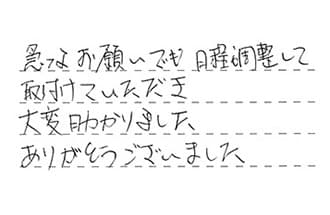 急なお願いでも日程調整して
取付けていただき
大変助かりました、
ありがとうございました